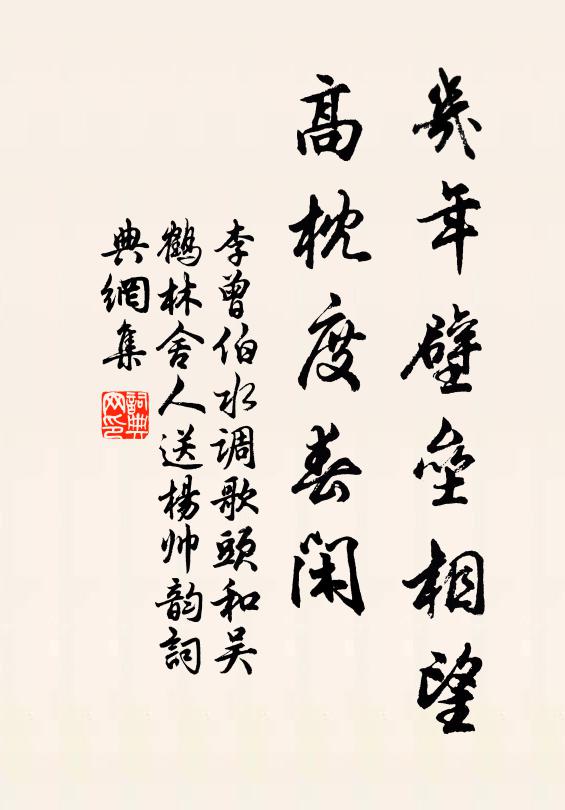 幾年壁壘相望
高枕度春閑
李曾伯水調歌頭和吳
鶴林舍人送楊帥韵詞
典網集
詞典網印